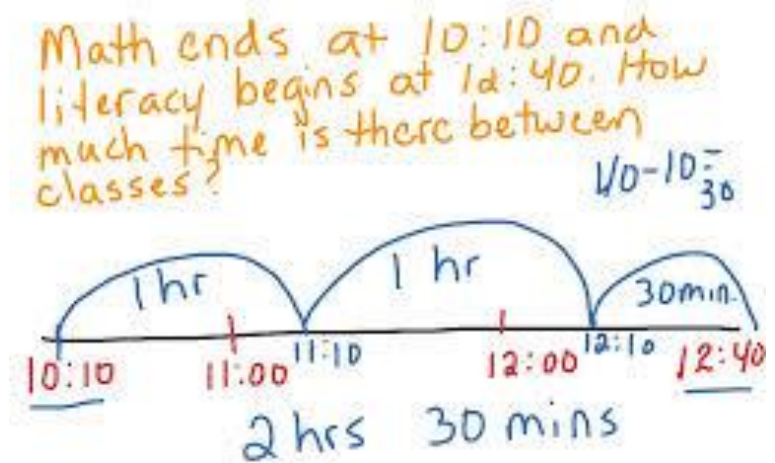 Math ends at 10:10 and
literacy begins at 12:40. How
much time is there between
classes?
40-10=
30
1 hr 1 hr 30min.
10:10 11:00 11:10 12:00 12:10 12:40
2 hrs 30 mins